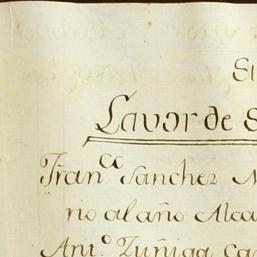 El
Lavor de S
Fran.co Sanchez M
rio al año Alca
Ant.o Zuñiga Ca